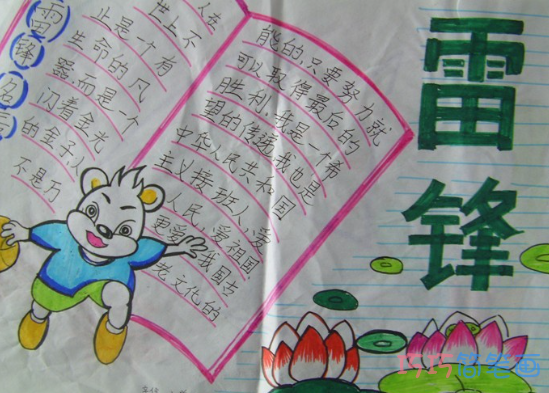 雷锋
雷锋名言
人在
世上不
止是一个有
生命的风
器,而是一个
闪着金光
的金子人
不是万
能的,只要努力就
可以取得最后的
胜利,我是一个希
望的传递,我也是
中华人民共和国
主义接班人,爱
人民,爱祖国
更爱我国古
老文化的
巧巧简笔画